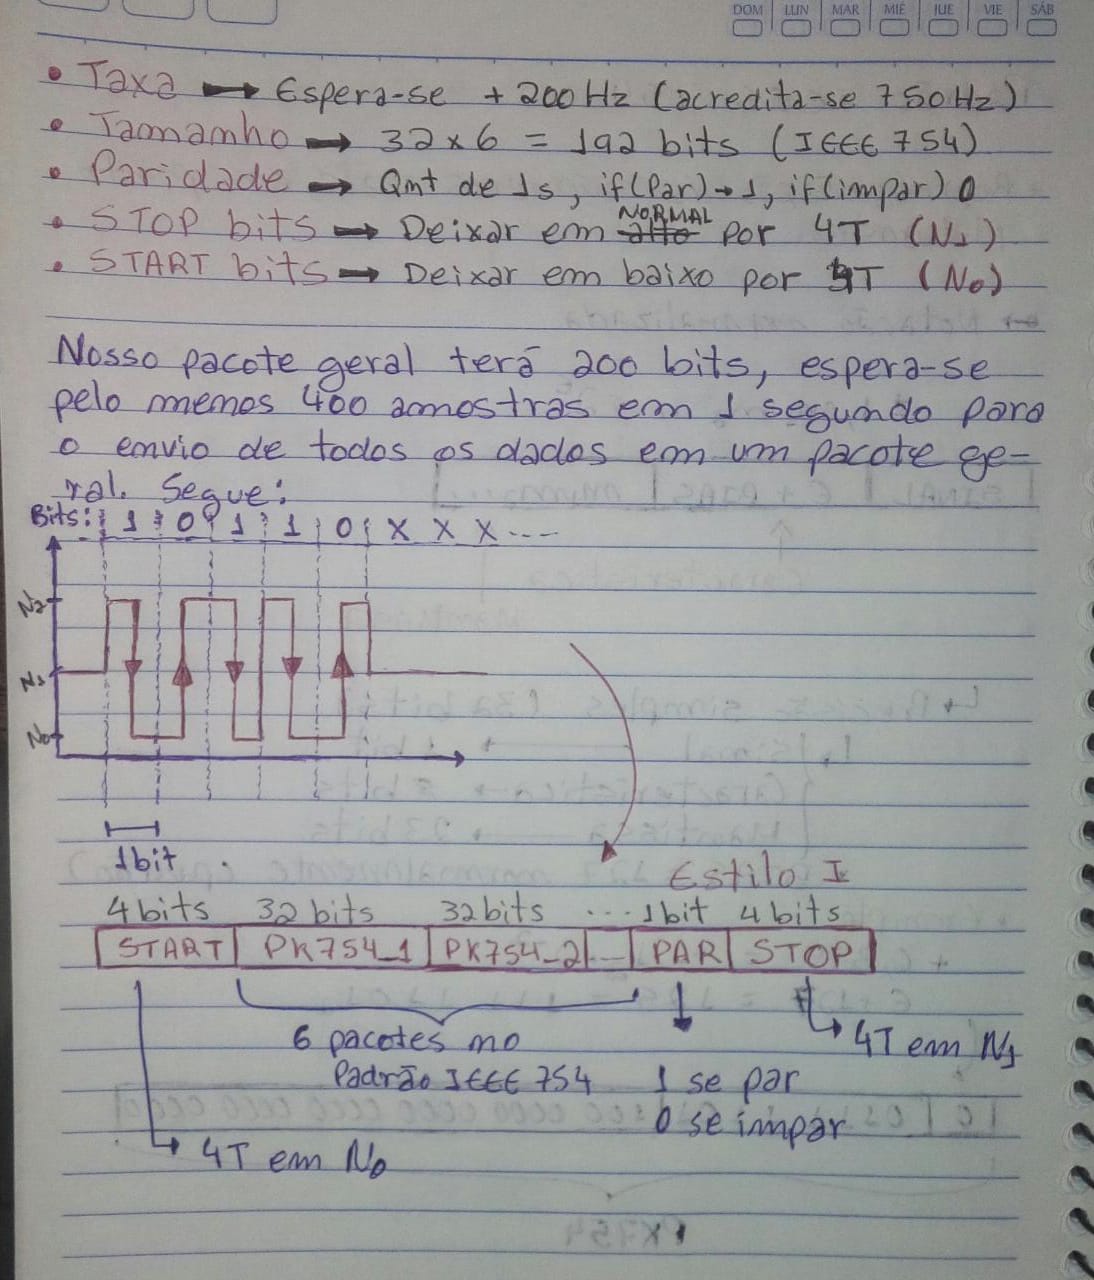 DOM LUN MAR MIÉ JUE VIE SÁB
• Taxa → Espera-se + 200 Hz (acredita-se 750Hz)
• Tamanho → 32 x 6 = 192 bits (IEEE 754)
• Paridade → Qnt de 1s, if(Par)→1, if(impar) 0
NORMAL
• STOP bits → Deixar em alto por 4T (N1)
• START bits → Deixar em baixo por 4T (N0)
Nosso pacote geral terá 200 bits, espera-se
pelo menos 400 amostras em 1 segundo para
o envio de todos os dados em um pacote ge-
ral. Segue:
Bits: 1 0 1 1 0 X X X ...
N2
N1
N0
1bit
Estilo I
4 bits 32 bits 32 bits ... 1bit 4 bits
START PK754_1 PK754_2 ... PAR STOP
6 pacotes no
Padrão IEEE 754
4T em N1
1 se par
0 se impar
4T em N0